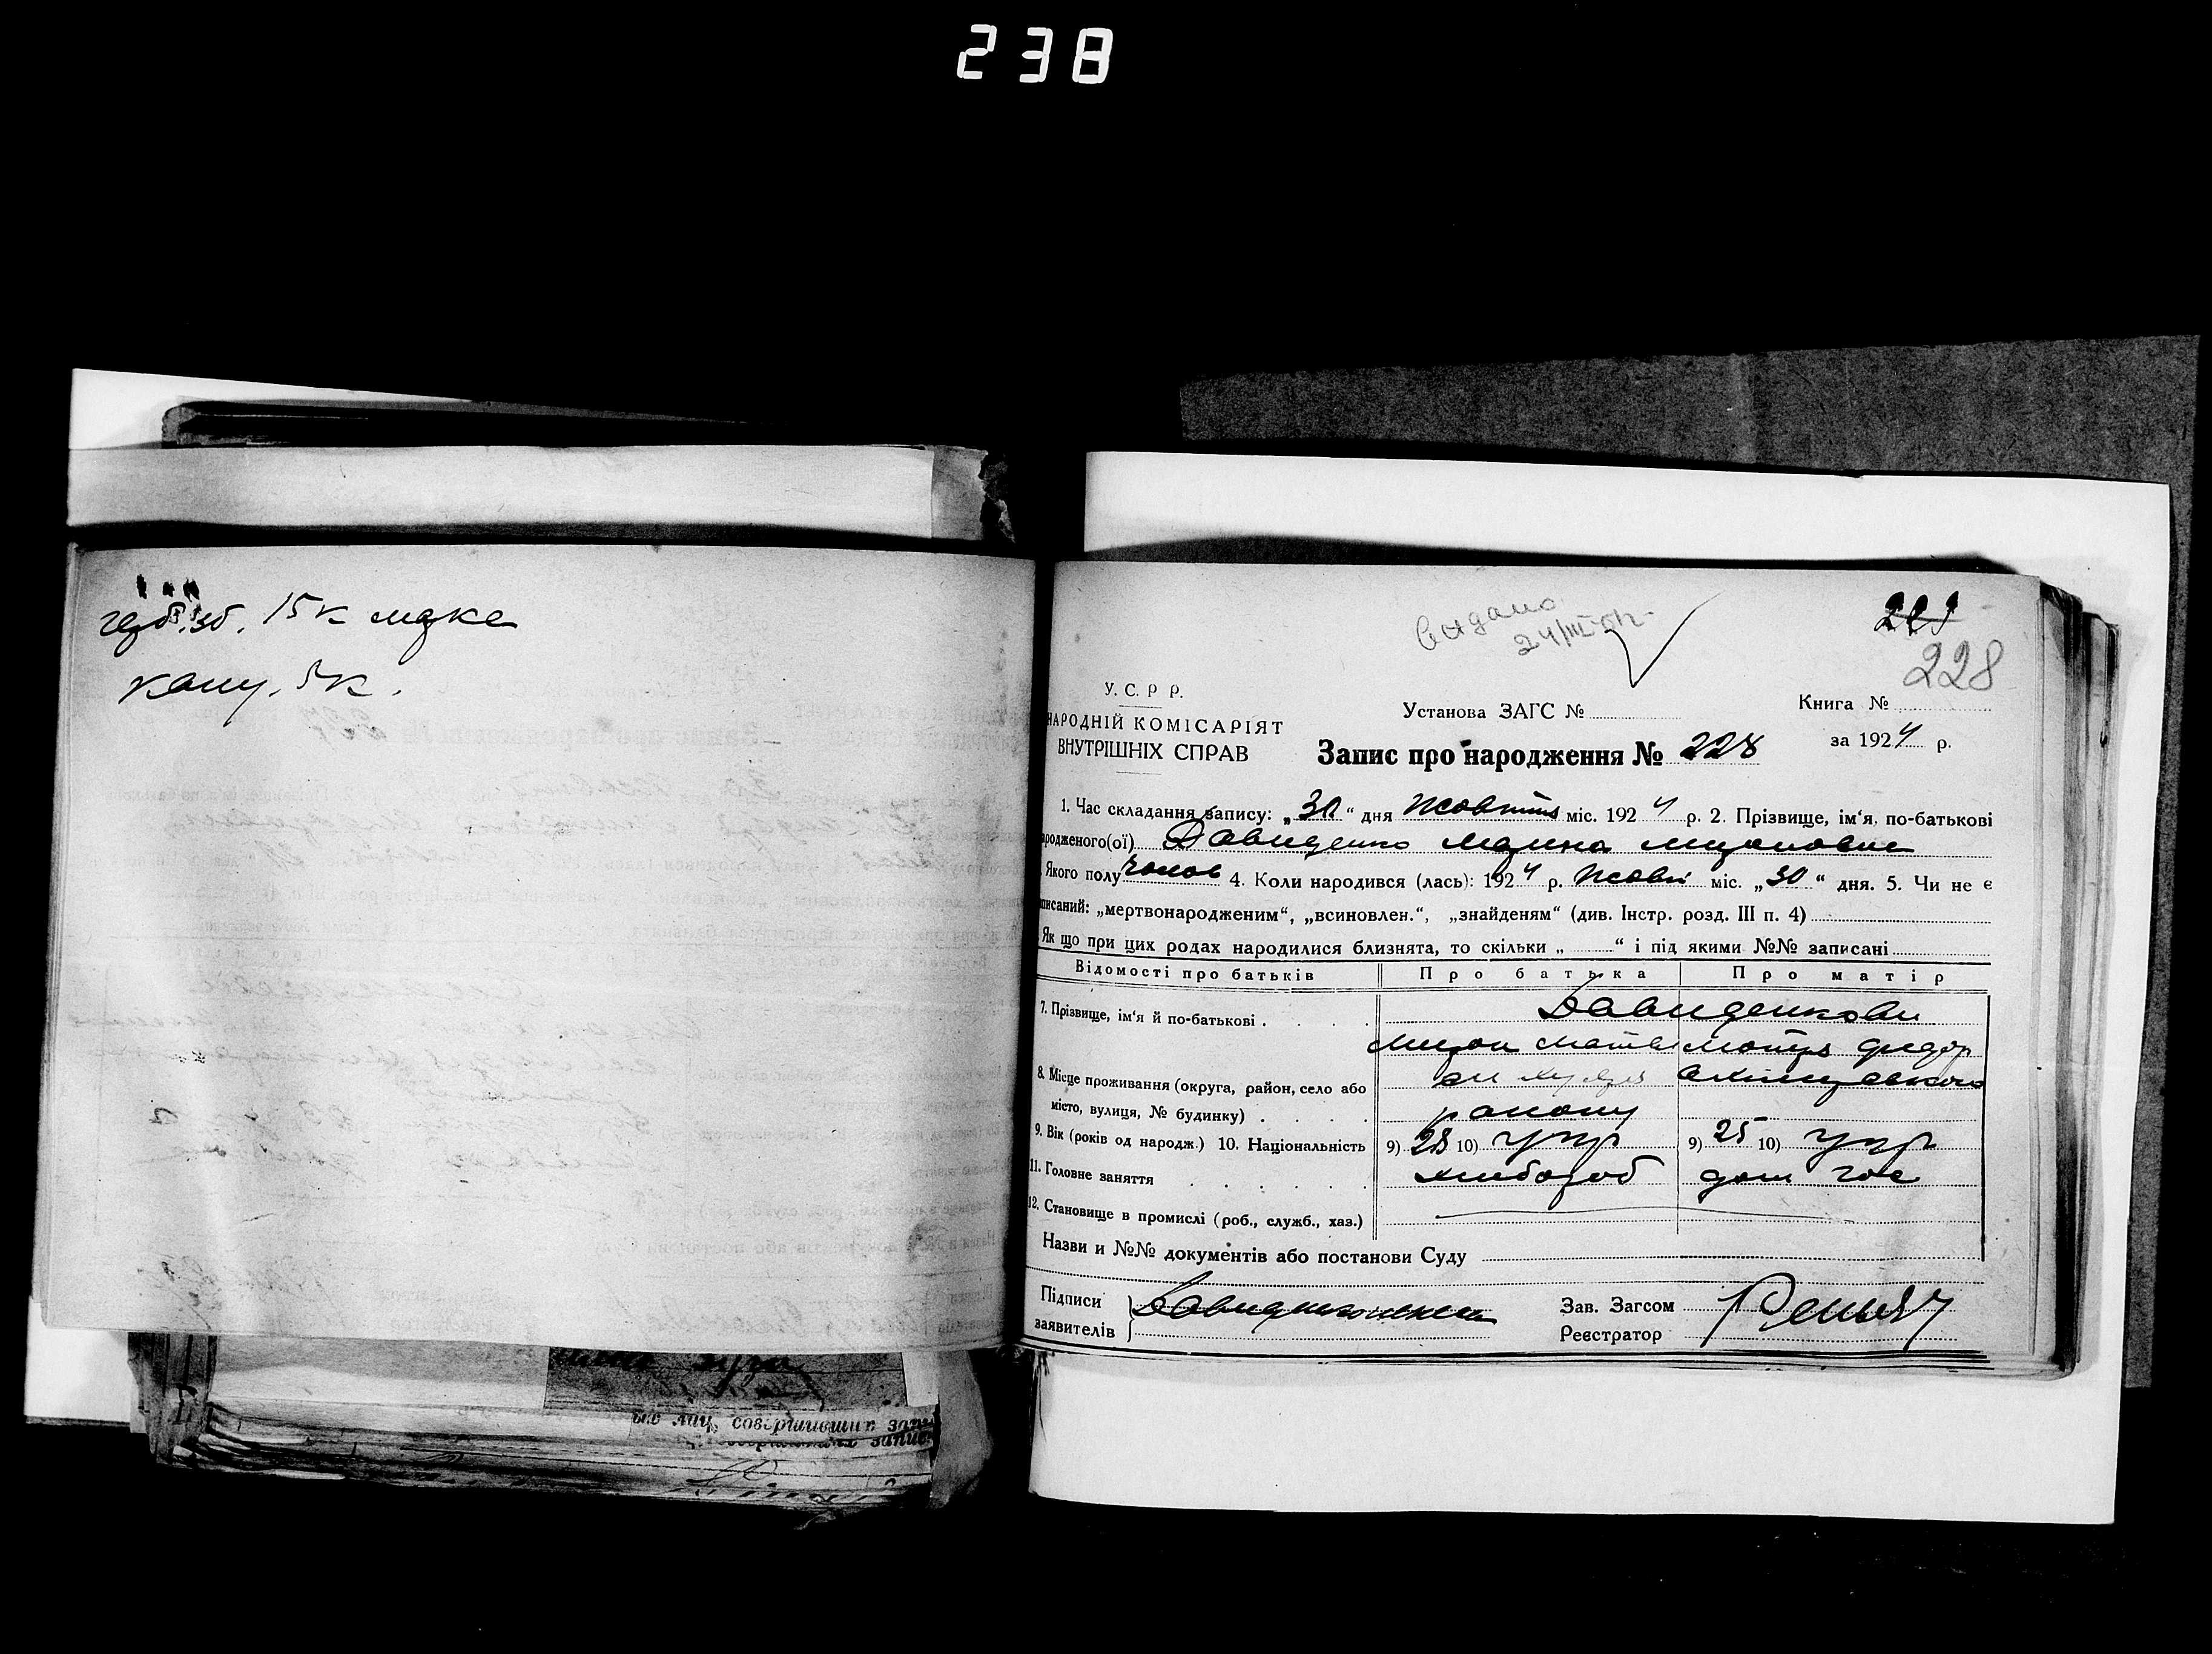 238
герб. зб. 15к
канц. 5к.
видано
24/III-
228
У. С. Р. Р.
НАРОДНІЙ КОМІСАРІЯТ
ВНУТРІШНІХ СПРАВ
Установа ЗАГС №
Книга №
за 1924 р.
Запис про народження № 228
1. Час складання запису: „30“ дня Жовтня міс. 1924 р. 2. Прізвище, ім'я, по-батькові
родженого(ої) Давиденко
Якого полу чолов 4. Коли народився (лась): 1924 р. Жовт міс. „30“ дня. 5. Чи не є
писаний: „мертвонародженим“, „всиновлен.“, „знайденям“ (див. Інстр. розд. III п. 4)
Як що при цих родах народилися близнята, то скільки „ “ і під якими №№ записані
Відомості про батьків Про батька Про матір
7. Прізвище, ім'я й по-батькові . . . . Давиденкови
Мирон Матв Мотря Федор
8. Місце проживання (округа, район, село або
місто, вулиця, № будинку) . . . району
9. Вік (років од народж.) 10. Національність 9) 28 10) укр 9) 25 10) укр
11. Головне заняття . . . . . . хлібороб дом гос
12. Становище в промислі (роб., служб., хаз.)
Назви и №№ документів або постанови Суду
Підписи
заявителів
Зав. Загсом
Реєстратор
вих лиц, совершивших запи